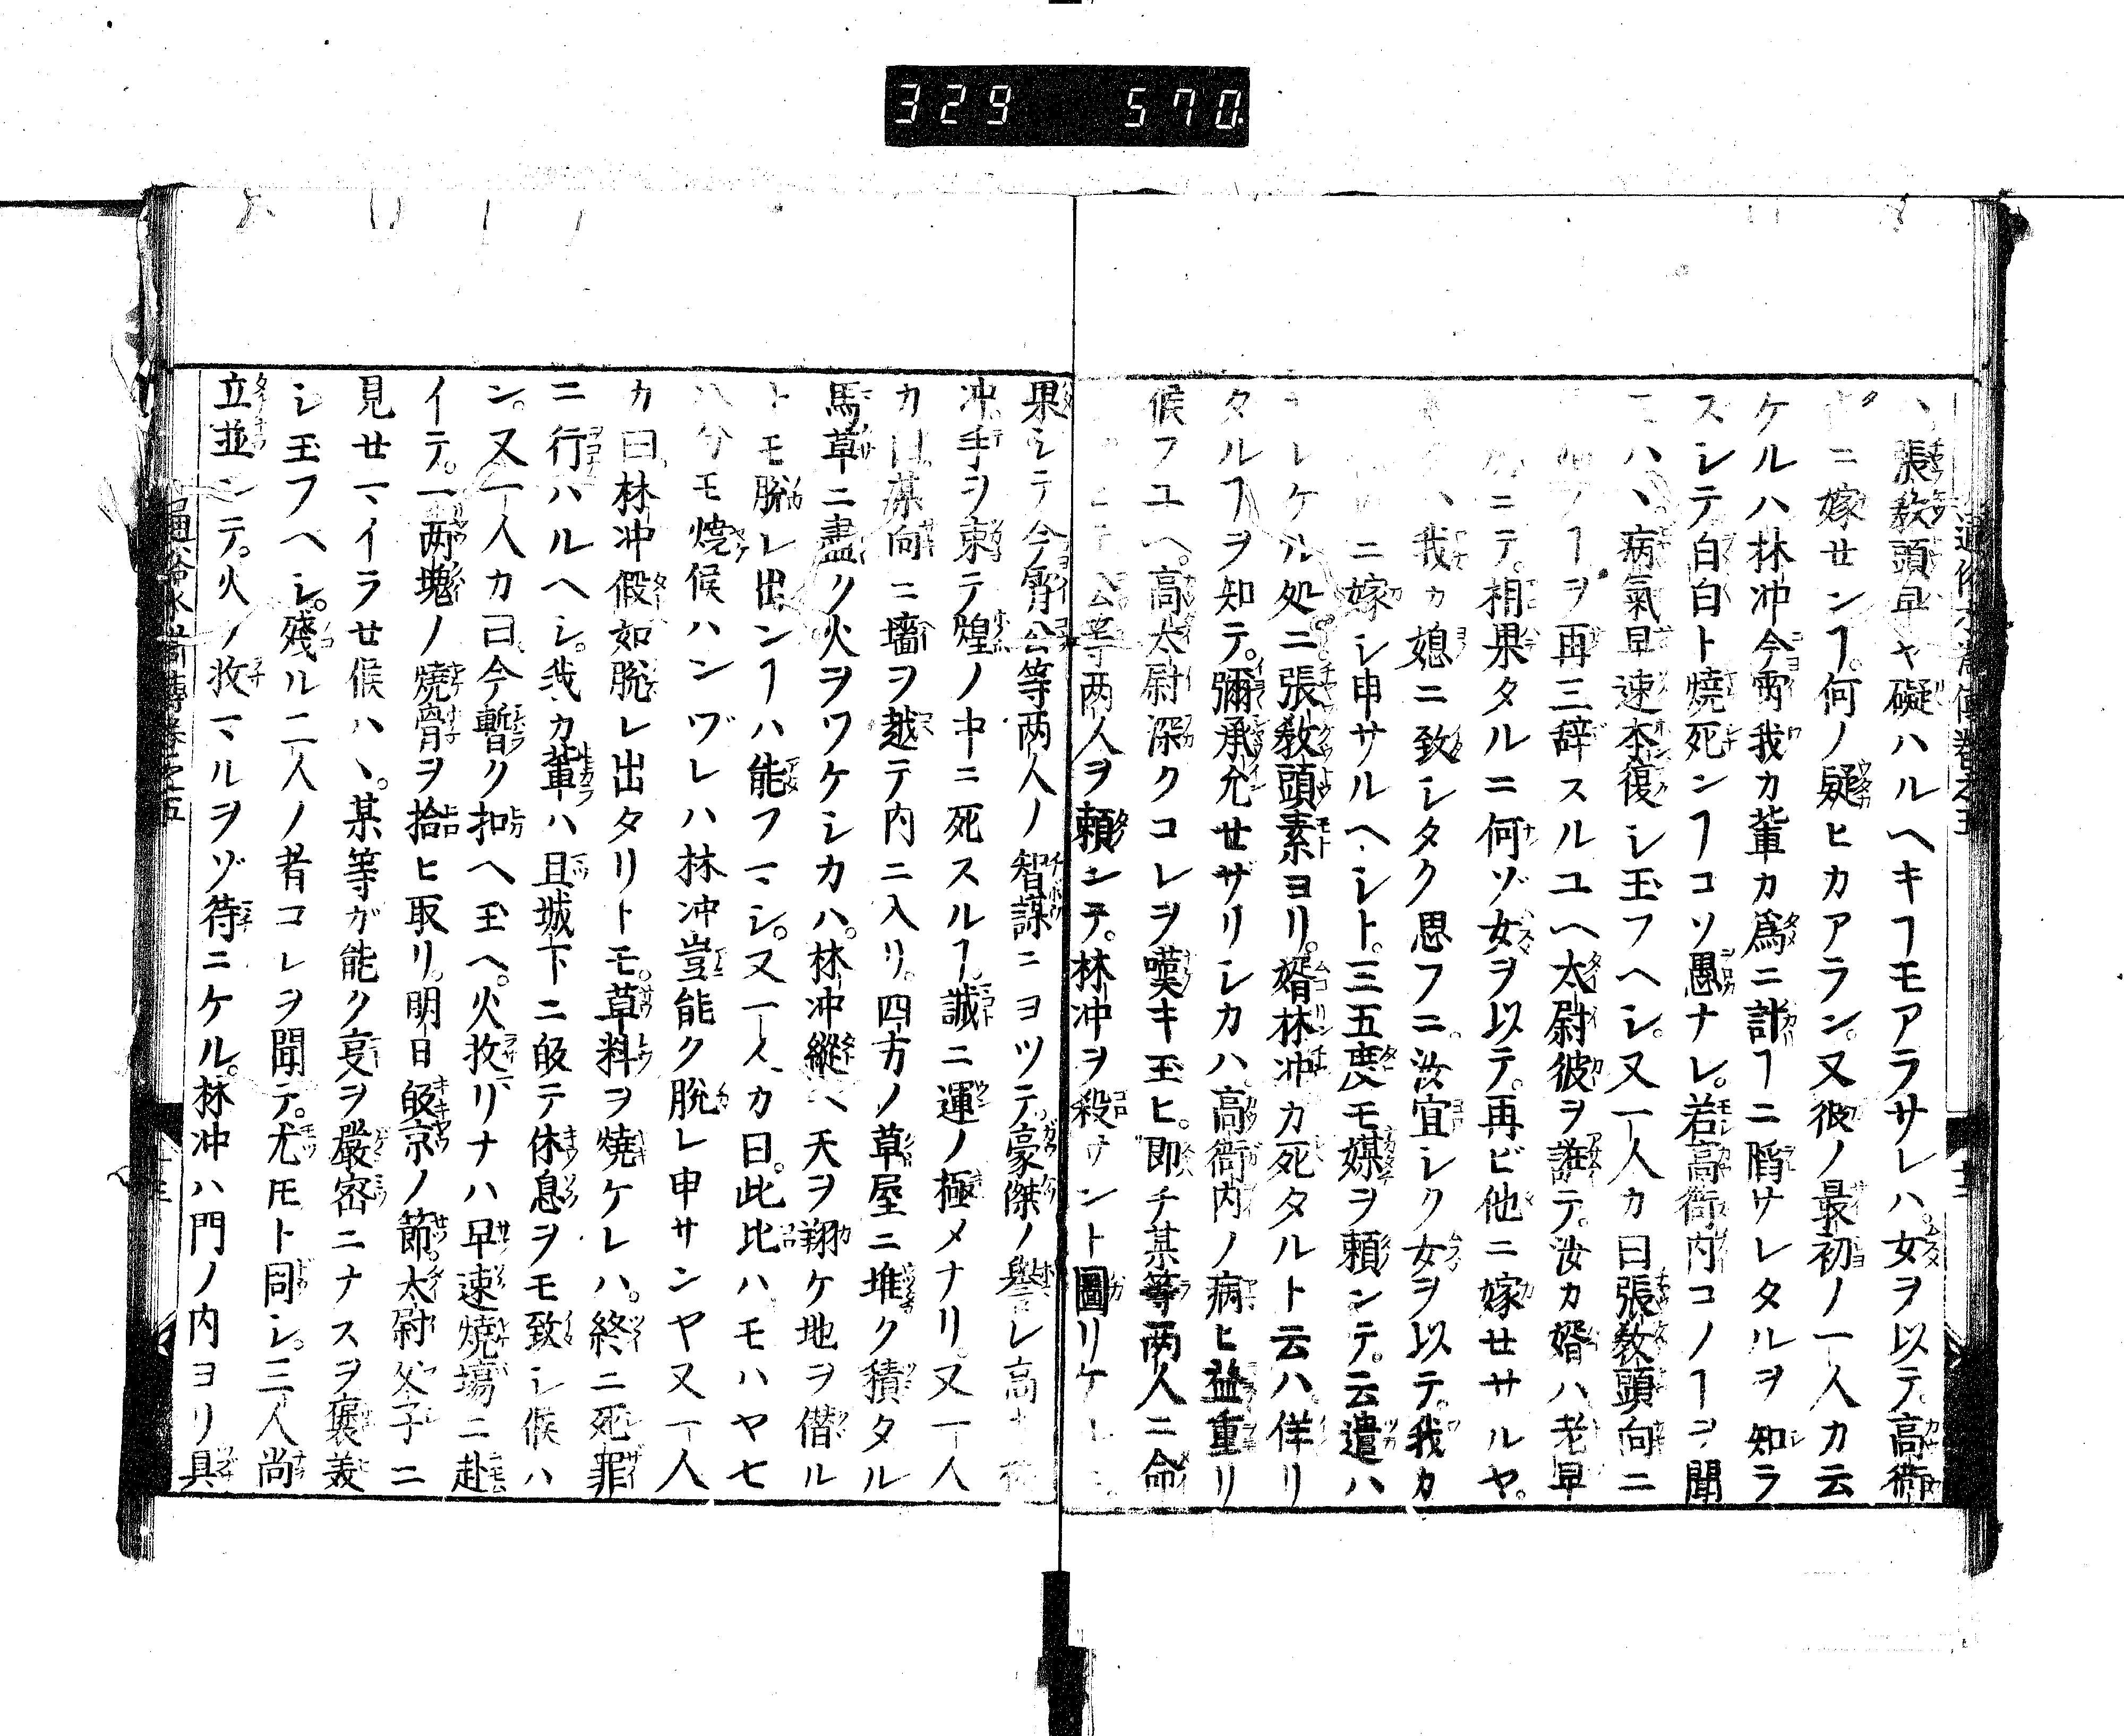 329 570
張敎頭早ヤ礙ハルヘキヿモアラサレハ女ヲ以テ。高衙
ニ嫁せンヿ。何ノ疑ヒカアラン。又彼ノ最初ノ一人カ云
ケルハ林冲今宵我カ輩カ爲ニ計ヿニ賺サレタルヲ知ラ
スシテ白白ト燒死ンヿコソ愚ナレ。若高衙内コノヿヲ聞
ハヽ病氣早速本復シ玉フヘシ。又一人カ曰張敎頭向ニ
ヿヲ再三辞スルユヘ太尉彼ヲ誑テ。汝カ婿ハ老早
ニテ。相果タルニ何ゾ女ヲ以テ。再ビ他ニ嫁せサルヤ。
我カ媳ニ致シタク思フニ。汝宜シク女ヲ以テ。我カ
ニ嫁シ申サルヘシト。三五度モ媒ヲ頼ンテ。云遣ハ
レケル処ニ張敎頭素ヨリ。婿林冲カ死タルト云ハ。佯リ
タルヿヲ知テ。彌承允せザリシカハ高衙内ノ病ヒ益重リ
候フユヘ。高太尉深クコレヲ嘆キ玉ヒ。即チ某等兩人ニ命
公等两人ヲ頼ンテ。林冲ヲ殺サント圖リケ
果シテ今宵公等两人ノ智謀ニヨツテ。豪傑ノ譽レ高
冲手ヲ束テ煌ノ中ニ死スルヿ。誠ニ運ノ極メナリ。又一人
カ曰。某向ニ墻ヲ越テ内ニ入リ。四方ノ草屋ニ堆ク積タル
馬草ニ盡ク火ヲワケシカハ。林冲縱ヘ天ヲ翔ケ地ヲ僭ル
トモ脱レ出ンヿハ能フマシ。又一人カ曰。此比ハ。モハヤ七
八分モ燒候ハンヅレハ林冲豈能ク脱レ申サンヤ又一人
カ曰。林冲假如脱レ出タリトモ。草料ヲ燒ケレハ。終ニ死罪
ニ行ハルヘシ。我カ輩ハ且城下ニ皈テ休息ヲモ致シ候ハ
ン。又一人カ曰。今暫ク扣ヘ玉ヘ。火收リナハ早速燒場ニ赴
イテ。一两塊ノ燒骨ヲ拾ヒ取リ。明日皈京ノ節。太尉父子ニ
見せマイラせ候ハヽ。某等ガ能ク亊ヲ嚴密ニナスヲ褒美
シ玉フヘシ。殘ル二人ノ者コレヲ聞テ。尤モト同シ。三人尚
立並ンテ。火ノ收マルヲゾ待ニケル。林冲ハ門ノ内ヨリ具